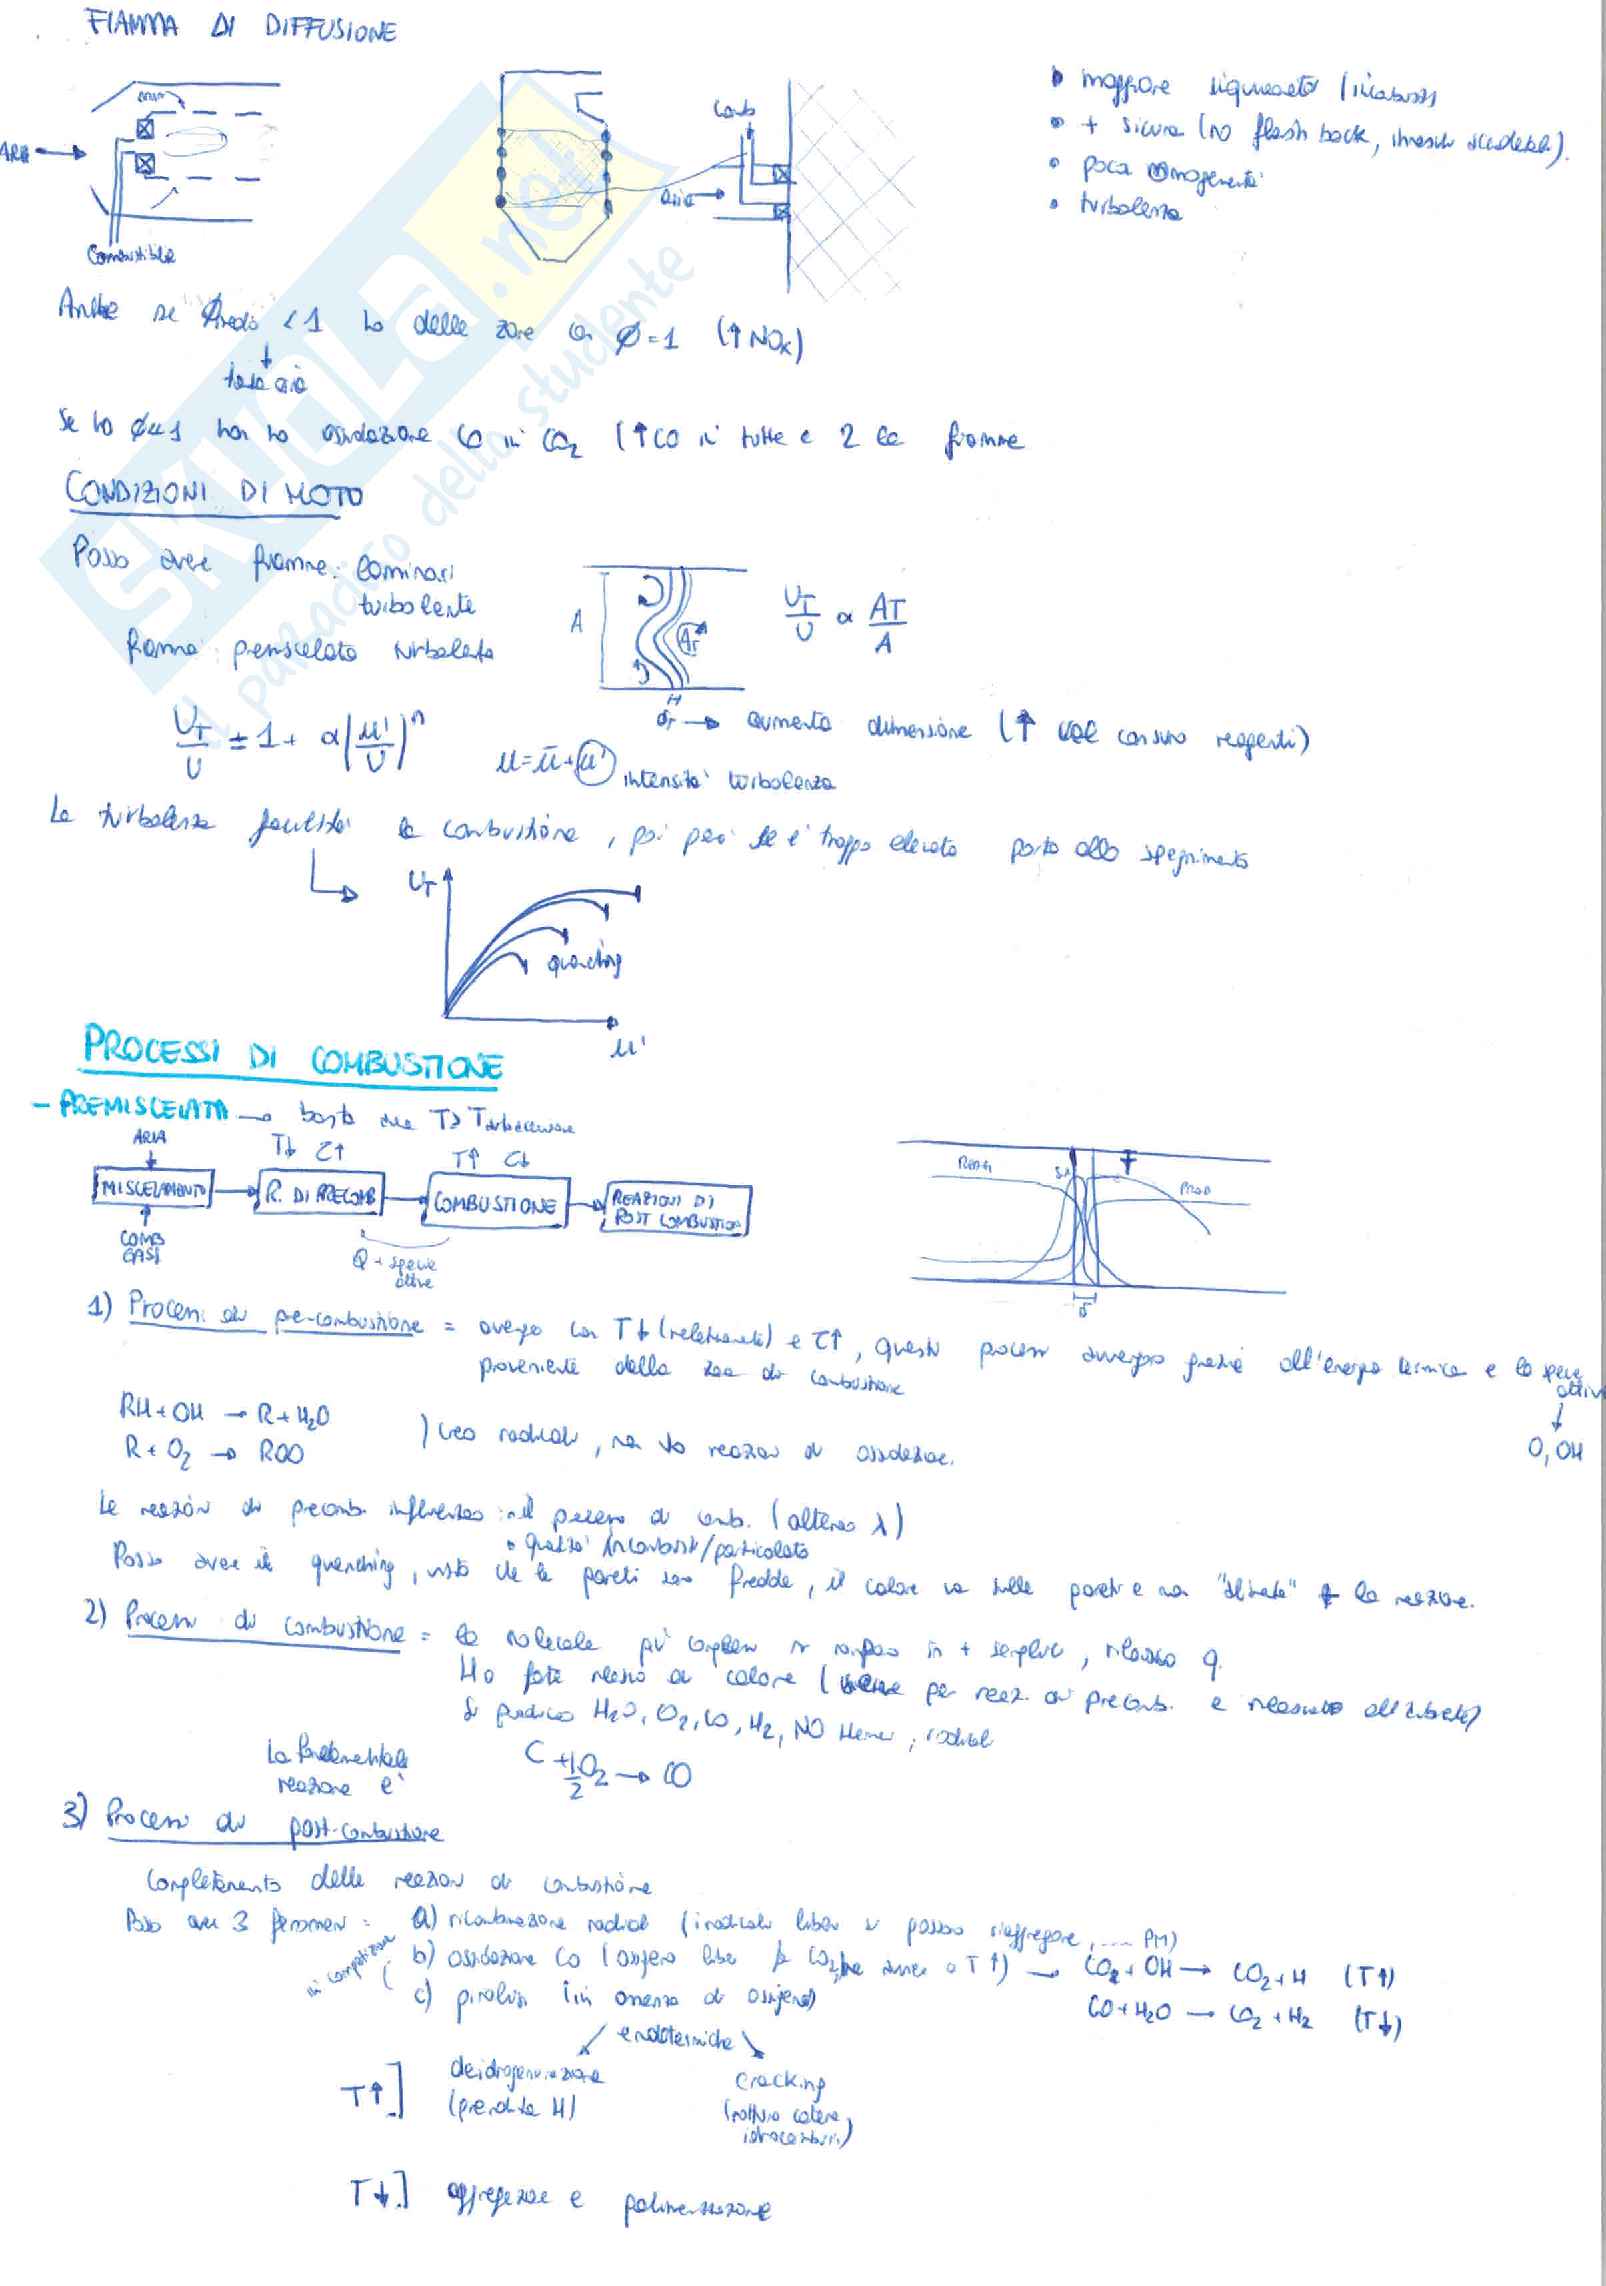 FIAMMA DI DIFFUSIONE
ARIA
Combustibile
Comb
aria
• maggiore
• + sicura (no flash back,
• poca omogeneità
• turbolenza
Anche se φmedio < 1 ho delle zone con φ=1 (↑NOx)
Se ho φ«1 non ho ossidazione CO in CO2 (↑CO in tutte e 2 le fiamme
CONDIZIONI DI MOTO
Posso avere fiamme: laminari
turbolente
fiamma: premiscelata turbolenta
A
AT
UT/U α AT/A
δT → aumenta dimensione (↑ vel consumo reagenti)
UT/U = 1 + α(u'/U)^n
u = ū + u' intensità turbolenza
La turbolenza facilita la combustione, poi però se è troppo elevata porta allo spegnimento
UT
quenching
u'
PROCESSI DI COMBUSTIONE
- PREMISCELATA → basta che T > Taccensione
ARIA
T↓ τ↑
T↑ τ↓
MISCELAMENTO
R. DI PRECOMB
COMBUSTIONE
REAZIONI DI POST COMBUSTION
COMB GASS
Q + specie attive
REAG
T
PROD
δ
1) Processi di pre-combustione = avvengono con T↓ (relativamente) e τ↑, questi processi avvengono grazie all'energia termica e le specie attive
proveniente dalla zona di combustione
O, OH
RH + OH → R + H2O
R + O2 → ROO
) creo radicali, non ho reazioni di ossidazione.
Le reazioni di precomb. influenzano: • il processo di comb. (alterano λ)
• quantità incombusti/particolato
Posso avere il quenching, visto che le pareti sono fredde, il calore va sulle pareti e non "alimenta" la reazione.
2) Processi di combustione = le molecole più complesse si rompono in + semplici, rilascio q.
Ho forte rilascio di calore ( per reaz. di precomb. e rilasciato all'ambiente)
Si producono H2O, O2, CO, H2, NO , radicali
La fondamentale reazione è
C + 1/2 O2 → CO
3) Processi di post-combustione
Completamento delle reazioni di combustione
Posso avere 3 fenomeni =
a) ricombinazione radicali (i radicali liberi si possono riaggregare, .... PM)
in competizione
b) ossidazione CO (ossigeno libero CO2, che avviene a T↑) → CO2 + OH → CO2 + H (T↑)
CO + H2O → CO2 + H2 (T↓)
c) pirolisi (in assenza di ossigeno)
endotermiche
T↑]
deidrogenazione
(perdita H)
cracking
(rottura catene idrocarburi)
T↓] aggregazione e polimerizzazione
SKUOLa.net
il paradiso dello studente